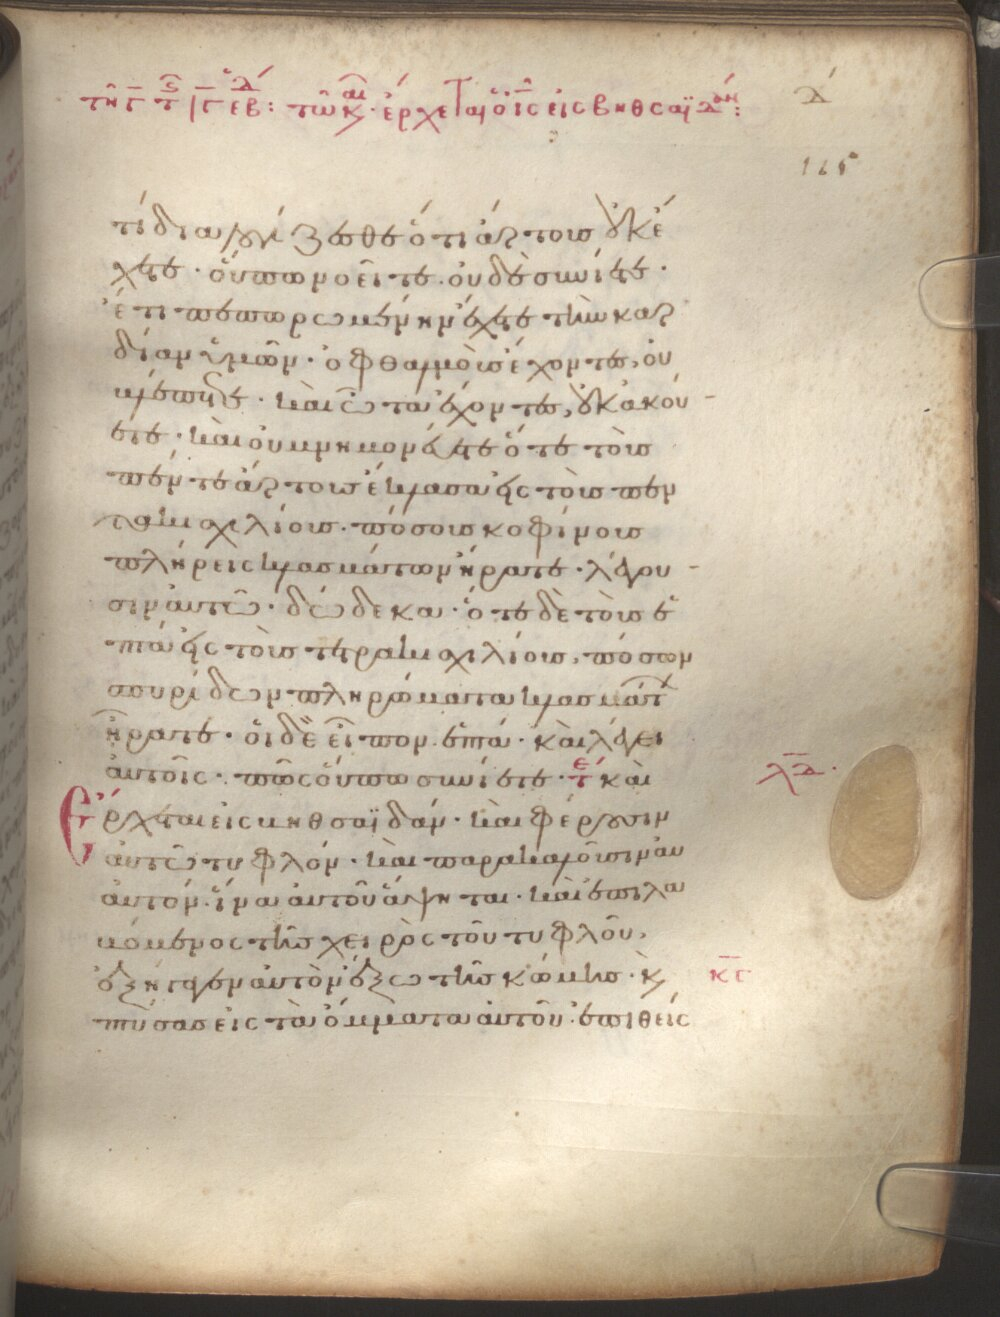 τῆ γ τ ιϛ ἑβδ: τῶ κ αι. ἔρχεται ὁ ις εἰς βηθσαϊδάν:
δ
165
τί διαλογίζεσθε ὅτι ἄρτους οὐκ ἔ
χετε· οὔπω νοεῖτε· οὐδὲ συνίετε·
ἔτι πεπωρωμένην ἔχετε τὴν καρ
δίαν ὑμῶν· ὀφθαλμοὺς ἔχοντες, οὐ
βλέπετε· καὶ ὦτα ἔχοντες, οὐκ ἀκού
ετε· καὶ οὐ μνημονεύετε ὅτε τοὺς
πέντε ἄρτους ἔκλασα εἰς τοὺς πεν
τακισχιλίους· πόσους κοφίνους
πλήρεις κλασμάτων ἤρατε· λέγου
σιν αὐτῶ· δώδεκα· ὅτε δὲ τοὺς ἑ
πτὰ εἰς τοὺς τετρακισχιλίους, πόσων
σπυρίδων πληρώματα κλασμάτ
ἤρατε· οἱ δὲ εἶπον· ἑπτά· καὶ λέγει
αὐτοῖς· πῶς οὔπω συνίετε· τε καὶ
λδ
ἔρχεται εἰς βηθσαϊδάν· καὶ φέρουσιν
αὐτῶ τυφλόν· καὶ παρακαλοῦσιν αὐ
αὐτὸν· ἵνα αὐτοῦ ἅψηται· καὶ ἐπιλα
βόμενος τῆς χειρὸς τοῦ τυφλοῦ,
ἐξήγαγεν αὐτὸν ἔξω τῆς κώμης· κ
κε
πτύσας εἰς τὰ ὄμματα αὐτοῦ· ἐπιθεὶς